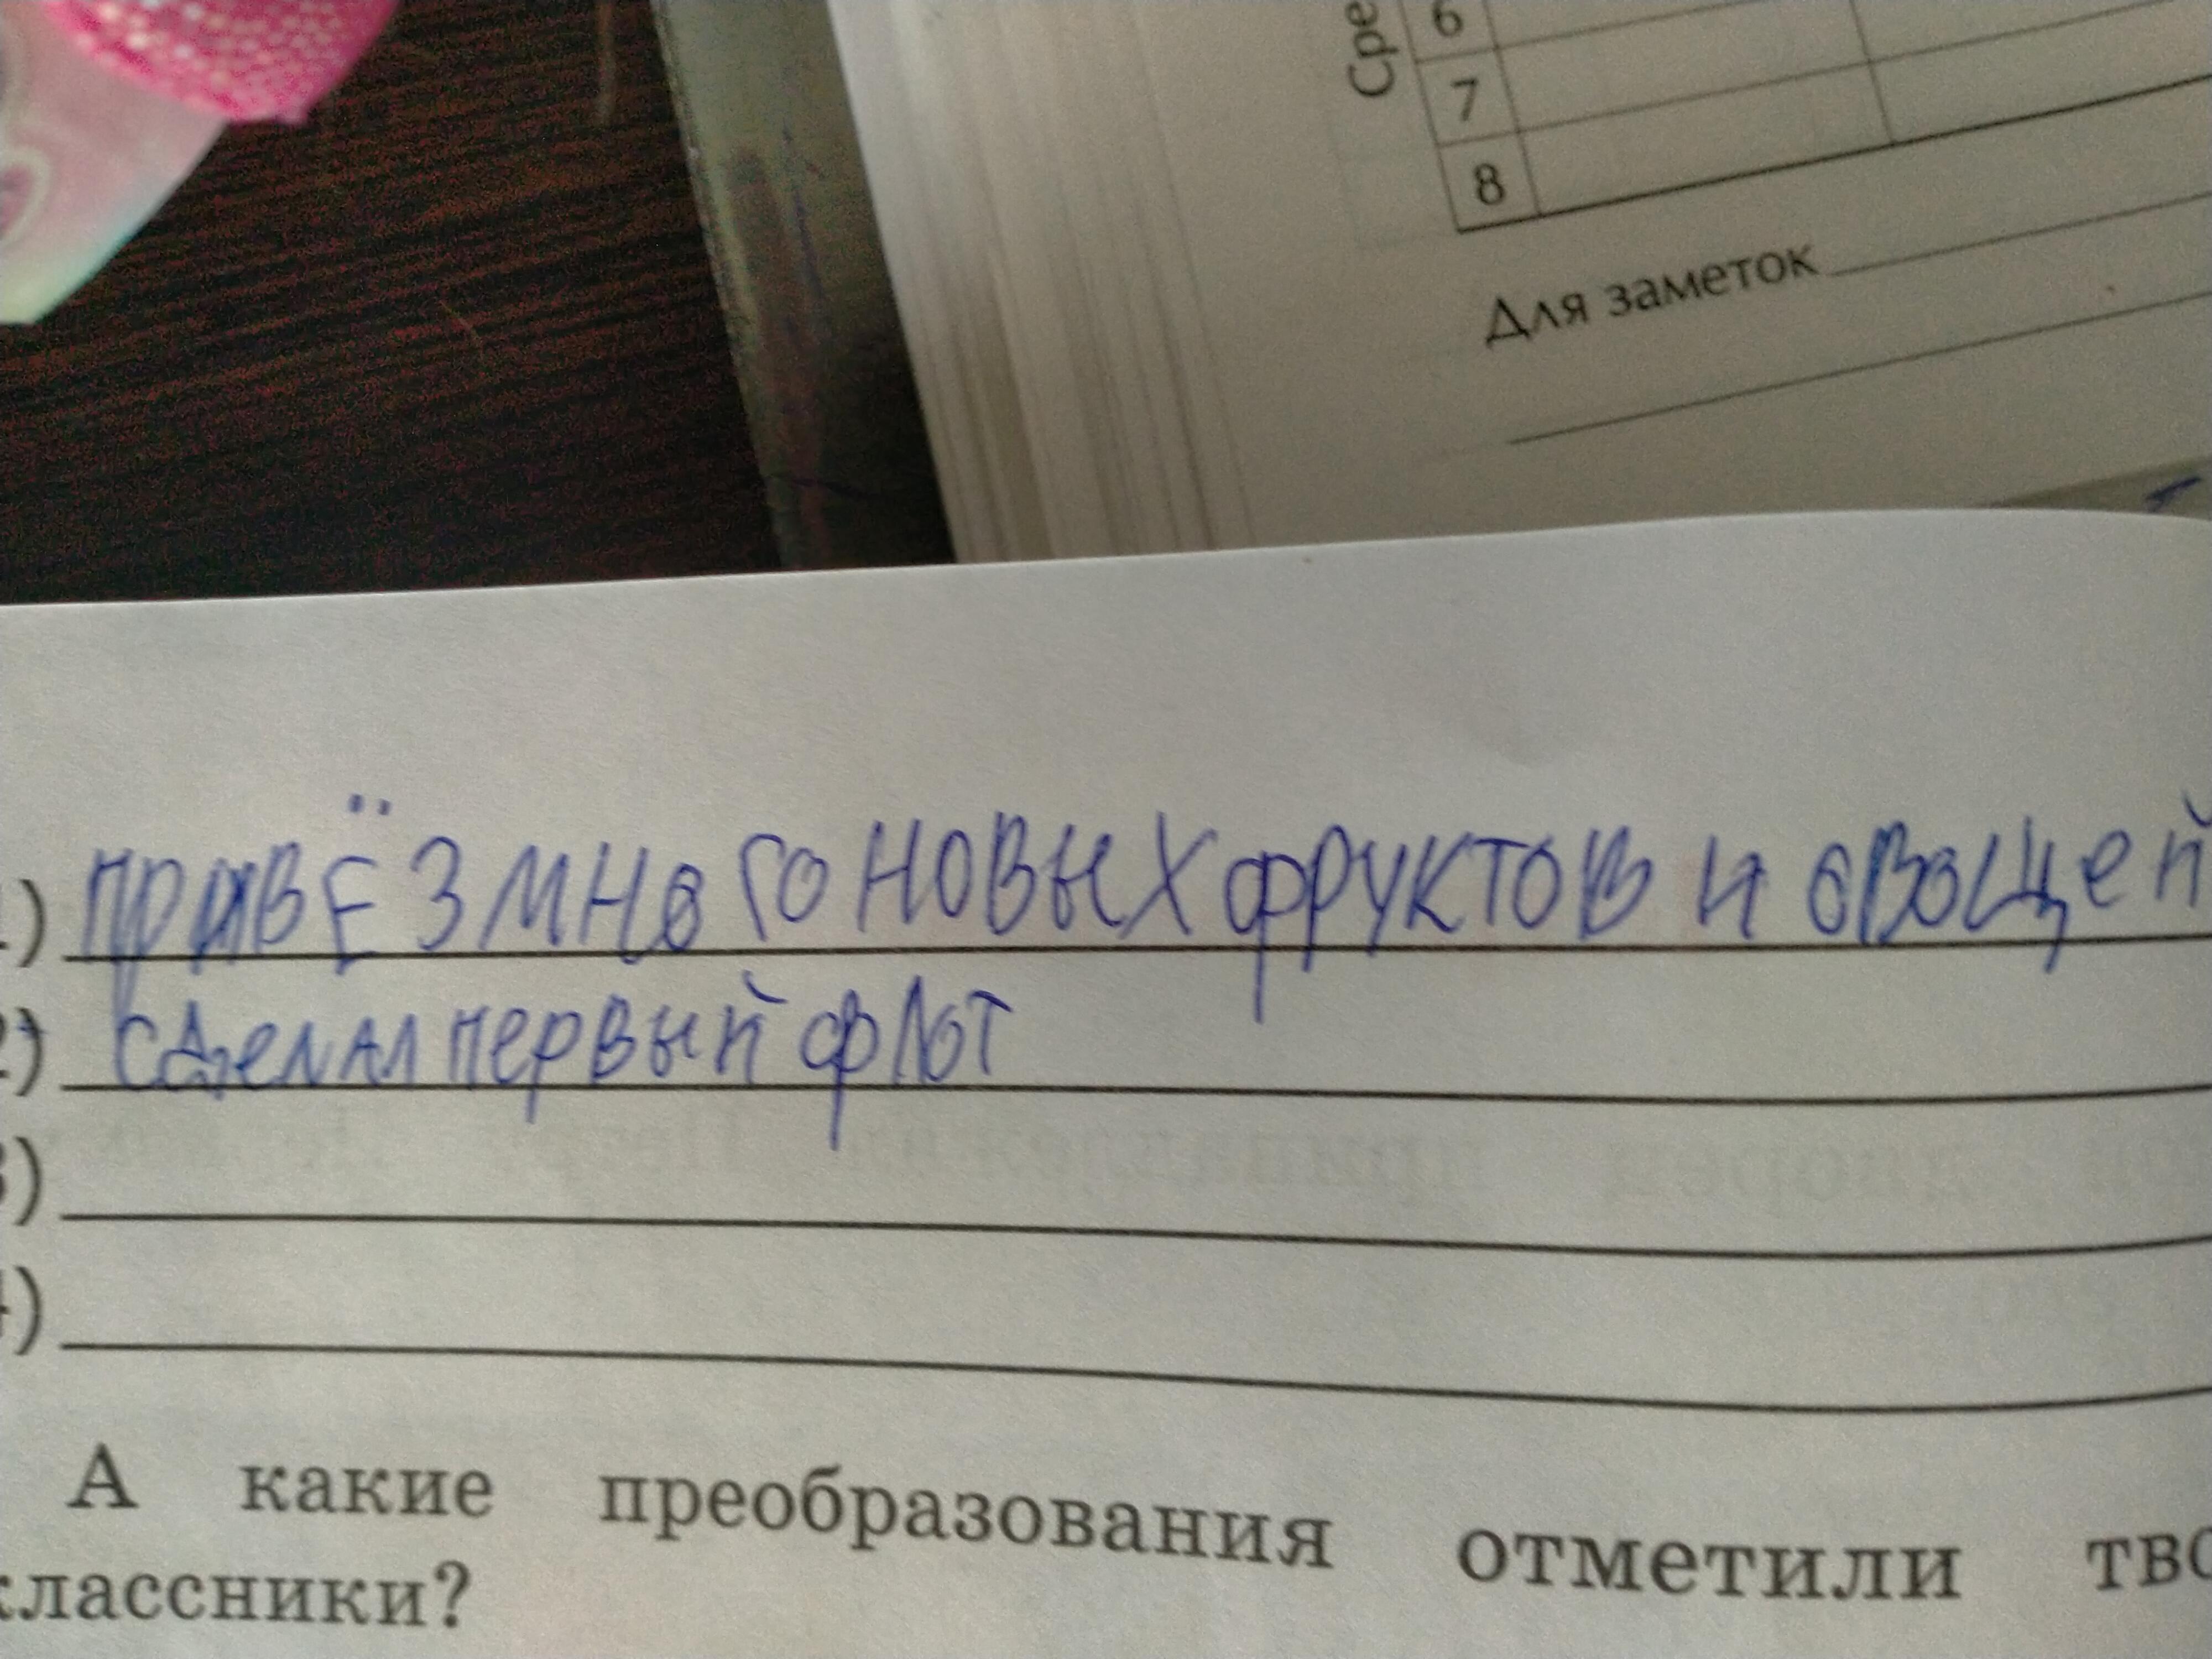 Сре
6
7
8
Для заметок
1) привёз много новых фруктов и овощей
2) сделал первый флот
3)
4)
А какие преобразования отметили тво
классники?